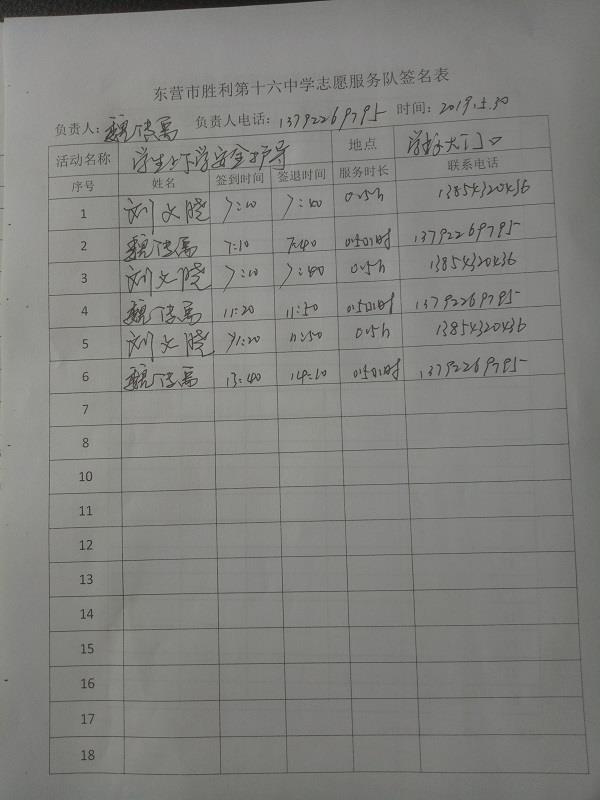 东营市胜利第十六中学志愿服务队签名表
负责人：魏传焉 负责人电话：13792269795 时间：2019.5.30
活动名称 学生上下学安全护导 地点 学校大门口
序号 姓名 签到时间 签退时间 服务时长 联系电话
1 刘文晓 7:10 7:40 0.5h 13854320436
2 魏传焉 7:10 7:40 0.5小时 13792269795
3 刘文晓 7:10 7:40 0.5h 13854320436
4 魏传焉 11:20 11:50 0.5小时 13792269795
5 刘文晓 11:20 11:50 0.5h 13854320436
6 魏传焉 13:40 14:10 0.5小时 13792269795
7
8
10
11
12
13
14
15
16
17
18